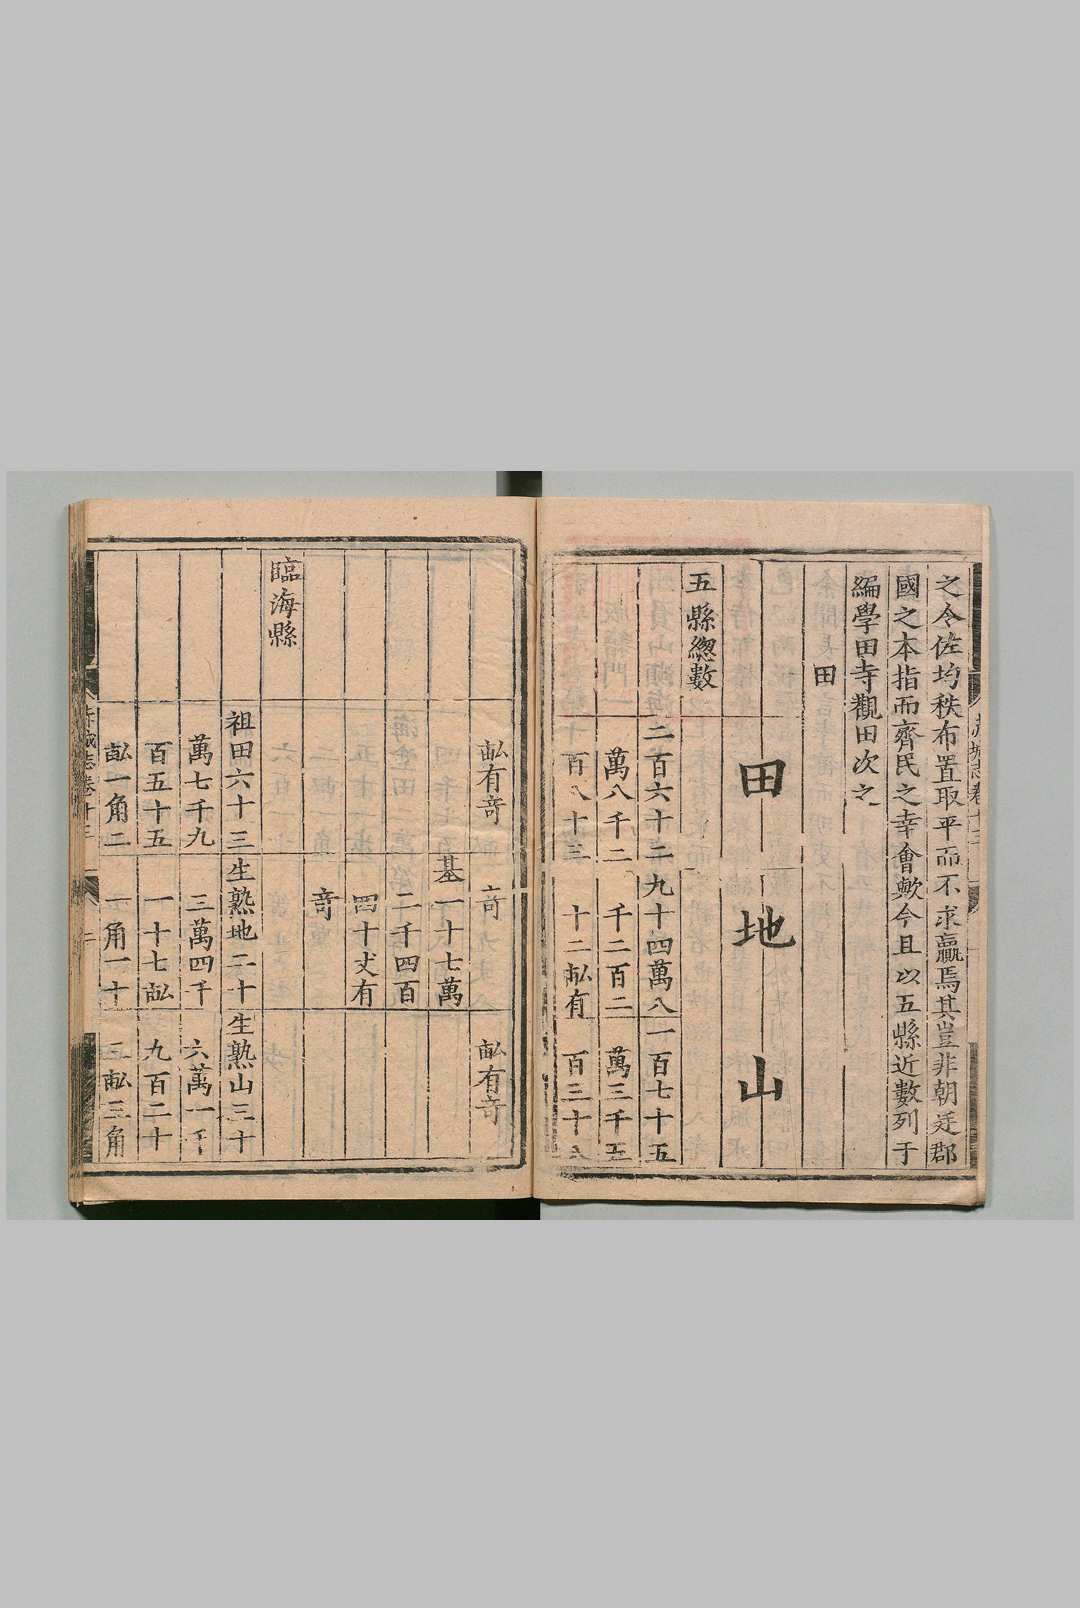 之令佐均秩布置取平而不求羸焉其豈非朝廷郡
國之本指而齊民之幸會歟今且以五縣近數列于
編學田寺觀田次之
田
田 地 山
五縣緫數
二百六十二 九十四萬八 一百七十五
萬八千二 千二百二 萬三千五
百八十三 十二畝有 百三十八
畝有奇 奇 畝有奇
基一十七萬
二千四百
四十丈有
奇
臨海縣
祖田六十三 生熟地二十 生熟山三十
萬七千九 三萬四千 六萬一千
百五十五 一十七畝 九百二十
畝一角二 一角一十 三畝三角
赤城志卷十三 二